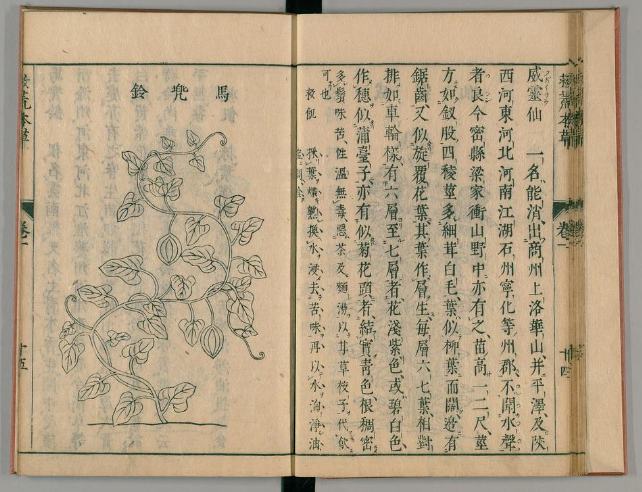 救荒本草
卷一
十四
威靈仙　一名能消出商州上洛華山并平澤及陝
西河東河北河南江湖石州寧化等州郡不聞水聲
者良今密縣梁家衝山野中亦有之苗高一二尺莖
方如釵股四稜莖多細茸白毛葉似柳葉而闊邊有
鋸齒又似旋覆花葉其葉作層生每層六七葉相對
排如車輪樣有六層至七層者花淺紫色或碧白色
作穗似蒲臺子亦有似菊花頭者結實青色根稠密
多鬚味苦性溫無毒惡茶及麵湯以甘草梔子代飲
可也
救飢　採葉煠熟換水浸去苦味再以水淘淨油
馬兠鈴
救荒本草
卷一
十五